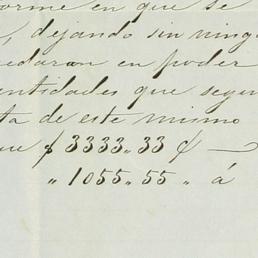 orme en que se
, dejando sin ning
edaran en poder
entidades que segu
ta de este mismo
ue $ 3333.. 33 ₵ —
" 1055.. 55 " á